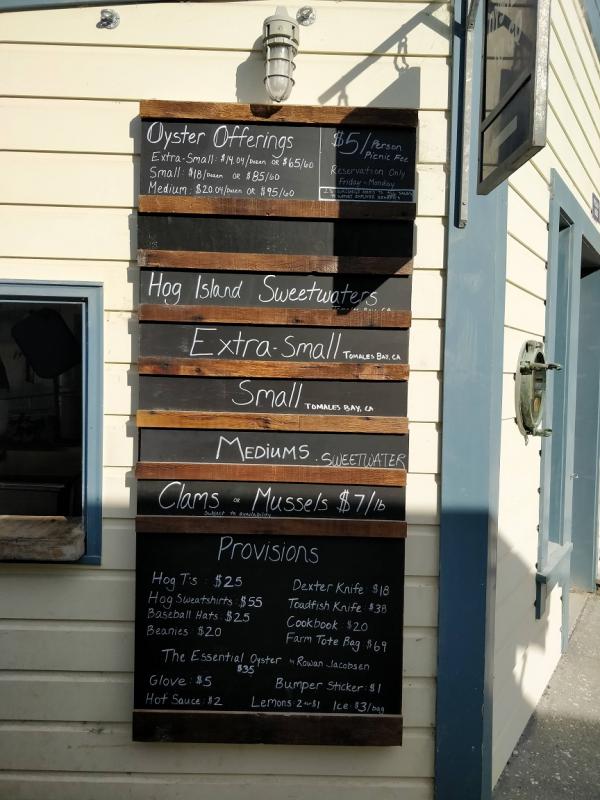 Oyster Offerings
Extra-Small: $14.04/Dozen OR $65/60
Small: $18/Dozen OR $85/60
Medium: $20.04/Dozen OR $95/60
$5/Person
Picnic Fee
Reservation Only
Friday - Monday
Hog Island Sweetwaters
Extra-Small TOMALES BAY, CA
Small TOMALES BAY, CA
MEDIUMS - SWEETWATER
Clams or Mussels $7/lb
Subject to availability
Provisions
Hog T's: $25
Hog Sweatshirts: $55
Baseball Hats: $25
Beanies: $20
Dexter Knife $18
Toadfish Knife: $38
Cookbook: $20
Farm Tote Bag $69
The Essential Oyster by Rowan Jacobsen
$35
Glove: $5 Bumper Sticker: $1
Hot Sauce: $2 Lemons: 2 for $1 Ice: $3/bag